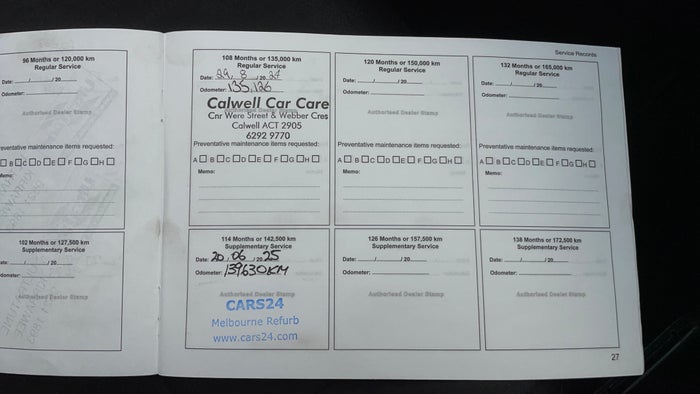 Service Records
96 Months or 120,000 km
Regular Service
Date: / /20
Odometer:
Authorised Dealer Stamp
reventative maintenance items requested:
B C D E F G H
Memo:
102 Months or 127,500 km
Supplementary Service
ate: / /20
dometer:
Authorised Dealer Stamp
108 Months or 135,000 km
Regular Service
Date: 29 / 8 / 20 24
Odometer: 135,126
Calwell Car Care
Cnr Were Street & Webber Cres
Calwell ACT 2905
6292 9770
Preventative maintenance items requested:
A B C D E F G H
Memo:
114 Months or 142,500 km
Supplementary Service
Date: 20 / 06 / 20 25
Odometer: 139630KM
Authorised Dealer Stamp
CARS24
Melbourne Refurb
www.cars24.com
120 Months or 150,000 km
Regular Service
Date: / /20
Odometer:
Authorised Dealer Stamp
Preventative maintenance items requested:
A B C D E F G H
Memo:
126 Months or 157,500 km
Supplementary Service
Date: / /20
Odometer:
Authorised Dealer Stamp
132 Months or 165,000 km
Regular Service
Date: / /20
Odometer:
Authorised Dealer Stamp
Preventative maintenance items requested:
A B C D E F G H
Memo:
138 Months or 172,500 km
Supplementary Service
Date: / /20
Odometer:
Authorised Dealer Stamp
27